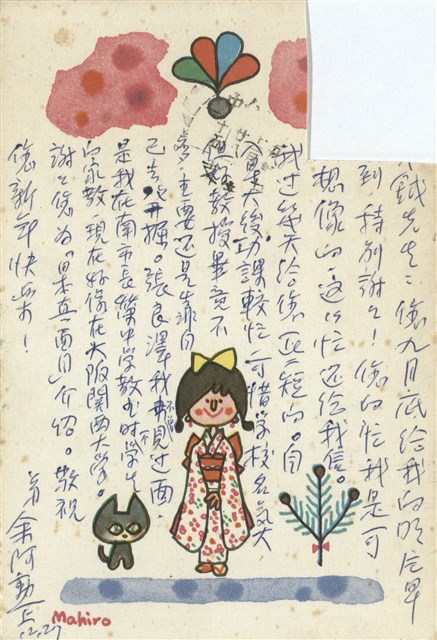 鉄先生：您九月底給我的明片早
到特別謝謝！您的忙我是可
想像的，這次忙還給我信。
我过幾天給您更短的。自
余東大後，功課較忙，可惜学校名気大，
但好教授畢竟不
多，主要还是靠自
己去开掘。張良澤，我不曾見过面，
是我在南市長榮中学教书时学生
的家教，現在好像在大阪關西大学。
謝謝您为「果真面目」介紹。敬祝
您新年快樂！
弟余阿勳上
12.27
Mahiro